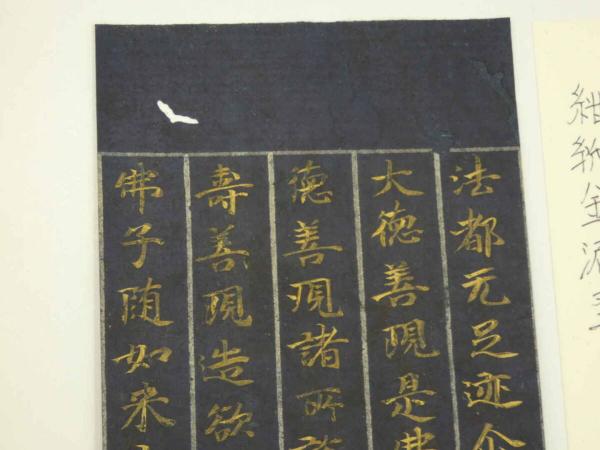 紺紙金泥
法都无足迹
大德善現是佛
德善現諸所
壽善現造欲
佛子随如来